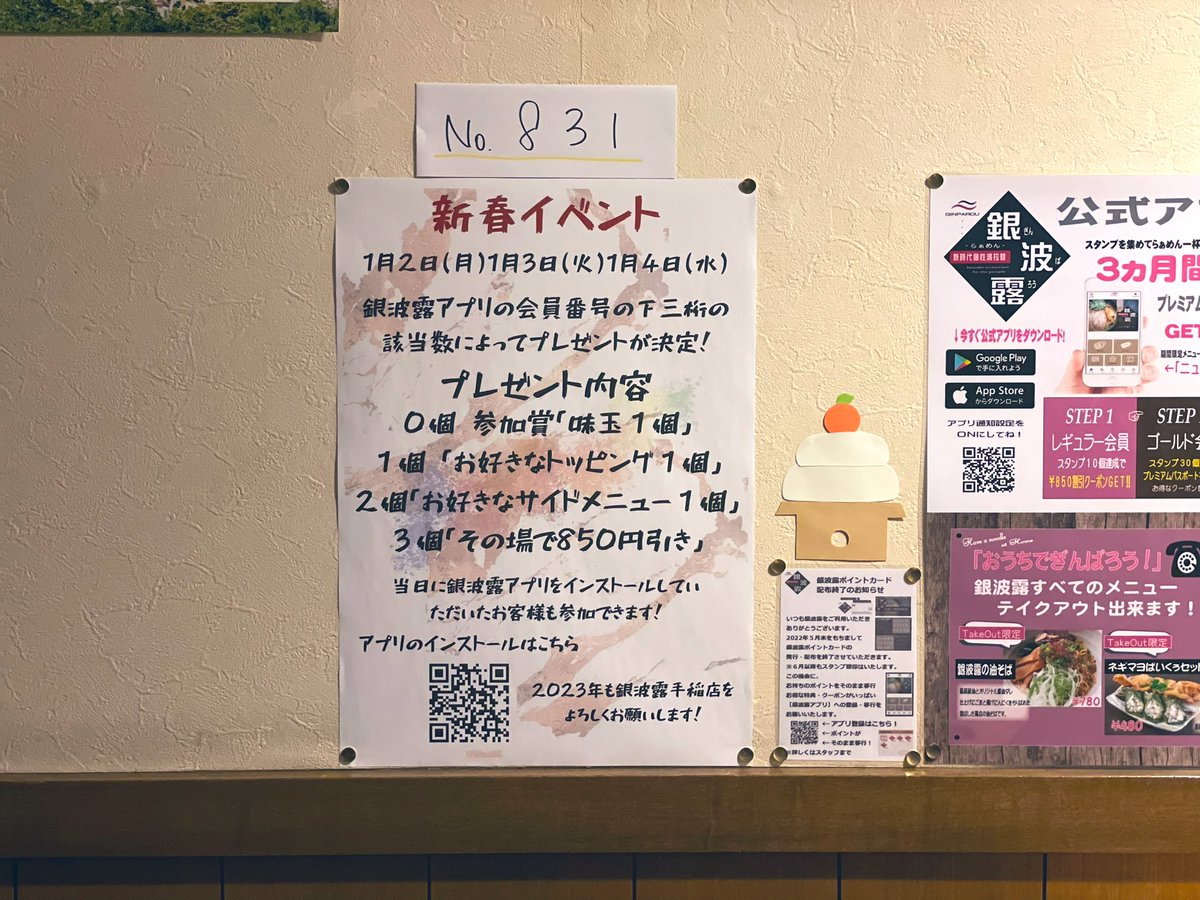 No. 831
新春イベント
1月2日(月)1月3日(火)1月4日(水)
銀波露アプリの会員番号の下三桁の
該当数によってプレゼントが決定!
プレゼント内容
0個 参加賞「味玉1個」
1個 「お好きなトッピング1個」
2個「お好きなサイドメニュー1個」
3個「その場で850円引き」
当日に銀波露アプリをインストールしてい
ただいたお客様も参加できます!
アプリのインストールはこちら
2023年も銀波露手稲店を
よろしくお願いします!
銀波露ポイントカード
配布終了のお知らせ
いつも銀波露をご利用いただき
ありがとうございます。
2022年5月末をもちまして
銀波露ポイントカードの
発行・配布を終了させていただきます。
※6月以降もスタンプ押印はいたします。
この機会に、
お持ちのポイントをそのまま移行
お得な特典・クーポンがいっぱい
【銀波露アプリ】への登録・移行を
お願いいたします。
←アプリ登録はこちら!
←ポイントが
そのまま移行!
※詳しくはスタッフまで
GINPAROU
銀ぎん
-らぁめん-
新時代個性派拉麺
波ば
露ろう
公式ア
スタンプを集めてらぁめん一杯
3ヵ月間
プレミアム
GET
期間限定メニュー
←「ニュ
↓今すぐ公式アプリをダウンロード!
Google Play
で手に入れよう
App Store
からダウンロード
アプリ通知設定を
ONにしてね!
STEP 1
レギュラー会員
スタンプ10個達成で
¥850割引クーポンGET!!
STEP
ゴールド会
スタンプ30個
プレミアムパスポート
お得なクーポン
Have a noodle
at Home
「おうちでぎんぱろう!」
銀波露すべてのメニュー
テイクアウト出来ます!
TakeOut限定
銀波露の油そば
¥780
TakeOut限定
ネギマヨぱいくぅセット
¥480